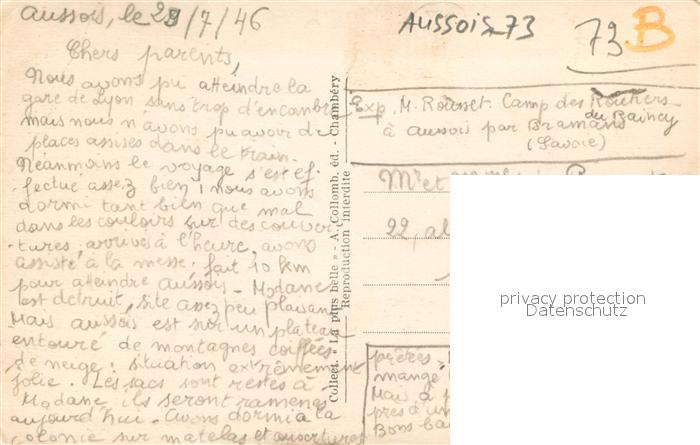 Aussois, le 28/7/46
Chers parents,
Nous avons pu atteindre la
gare de Lyon sans trop d'encombre
mais nous n'avons pu avoir de
places assises dans le train.
Néanmoins le voyage s'est ef-
fectué assez bien ; nous avons
dormi tant bien que mal
dans les couloirs sur des couver-
tures, arrivés à l'heure, avons
assisté à la messe. fait 10 km
pour atteindre aussois - Modane
est détruit, site assez peu plaisant
Mais aussois est sur un plateau
entouré de montagnes coiffées
de neige : situation extrêmement
jolie. Les sacs sont restés à
Modane ils seront ramenés
aujourd'hui - Avons dormi à la
colonie sur matelas et couvertures
Collect. « La plus belle » - A. Collomb, éd. - Chambéry
Reproduction interdite
AUSSOIS 73
73 B
Exp. M. Rousset Camp des Routiers
du Raincy
à aussois par Bramans
(Savoie)
Mr et
22, al
prêtres
mange
Mais à p
près d'un
Bons ba
privacy protection
Datenschutz